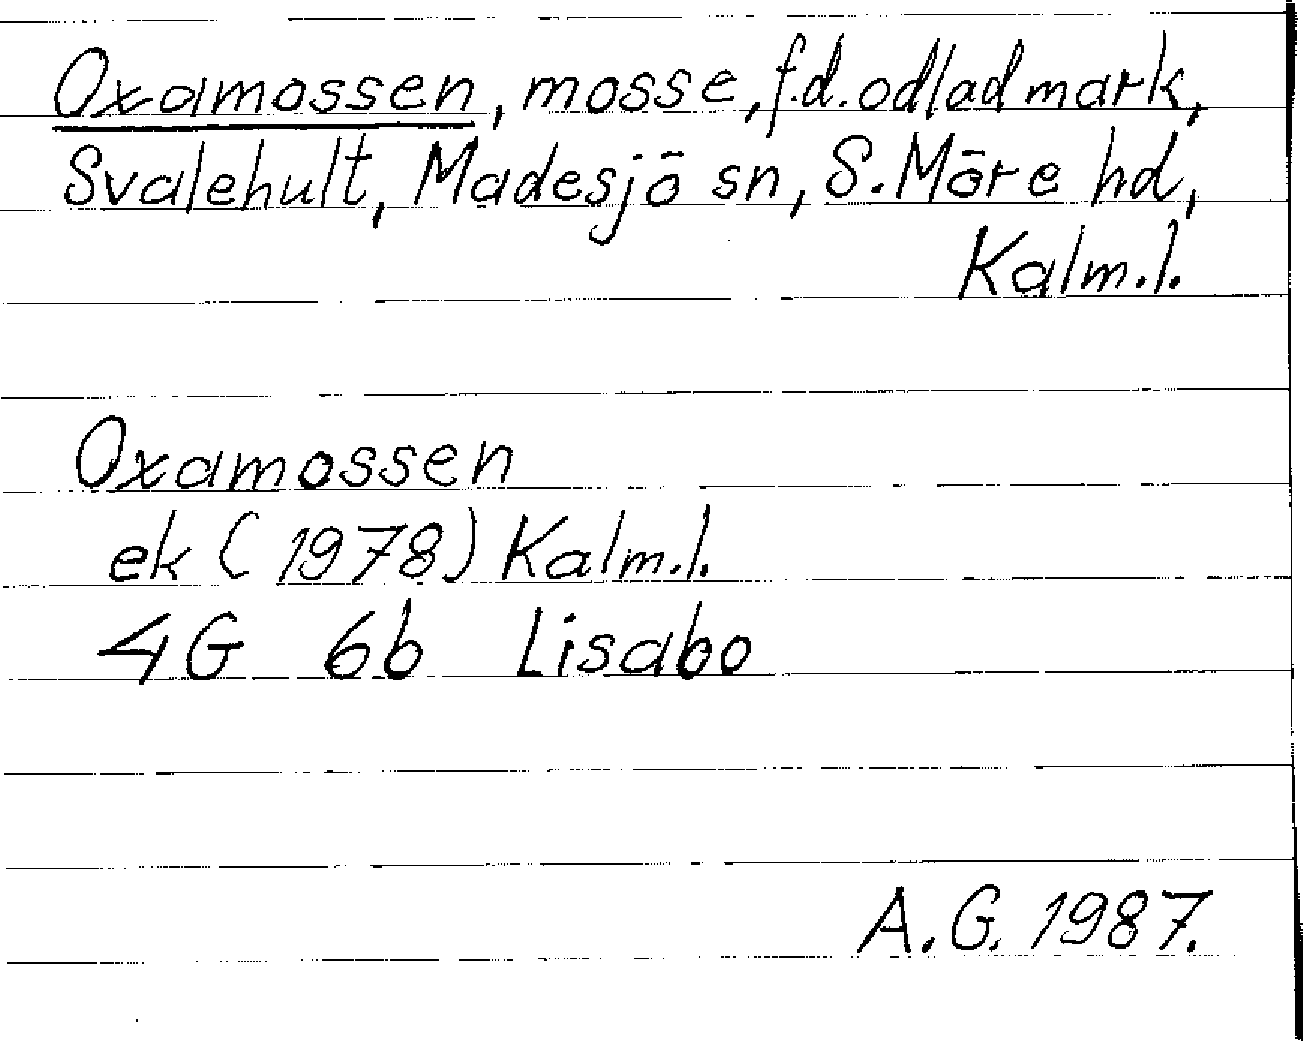 Oxamossen, mosse, f.d. odlad mark,
Svalehult, Madesjö sn, S. Möre hd,
Kalm.l.
Oxamossen
ek (1978) Kalm.l.
4G 6b Lisabo
A.G. 1987.